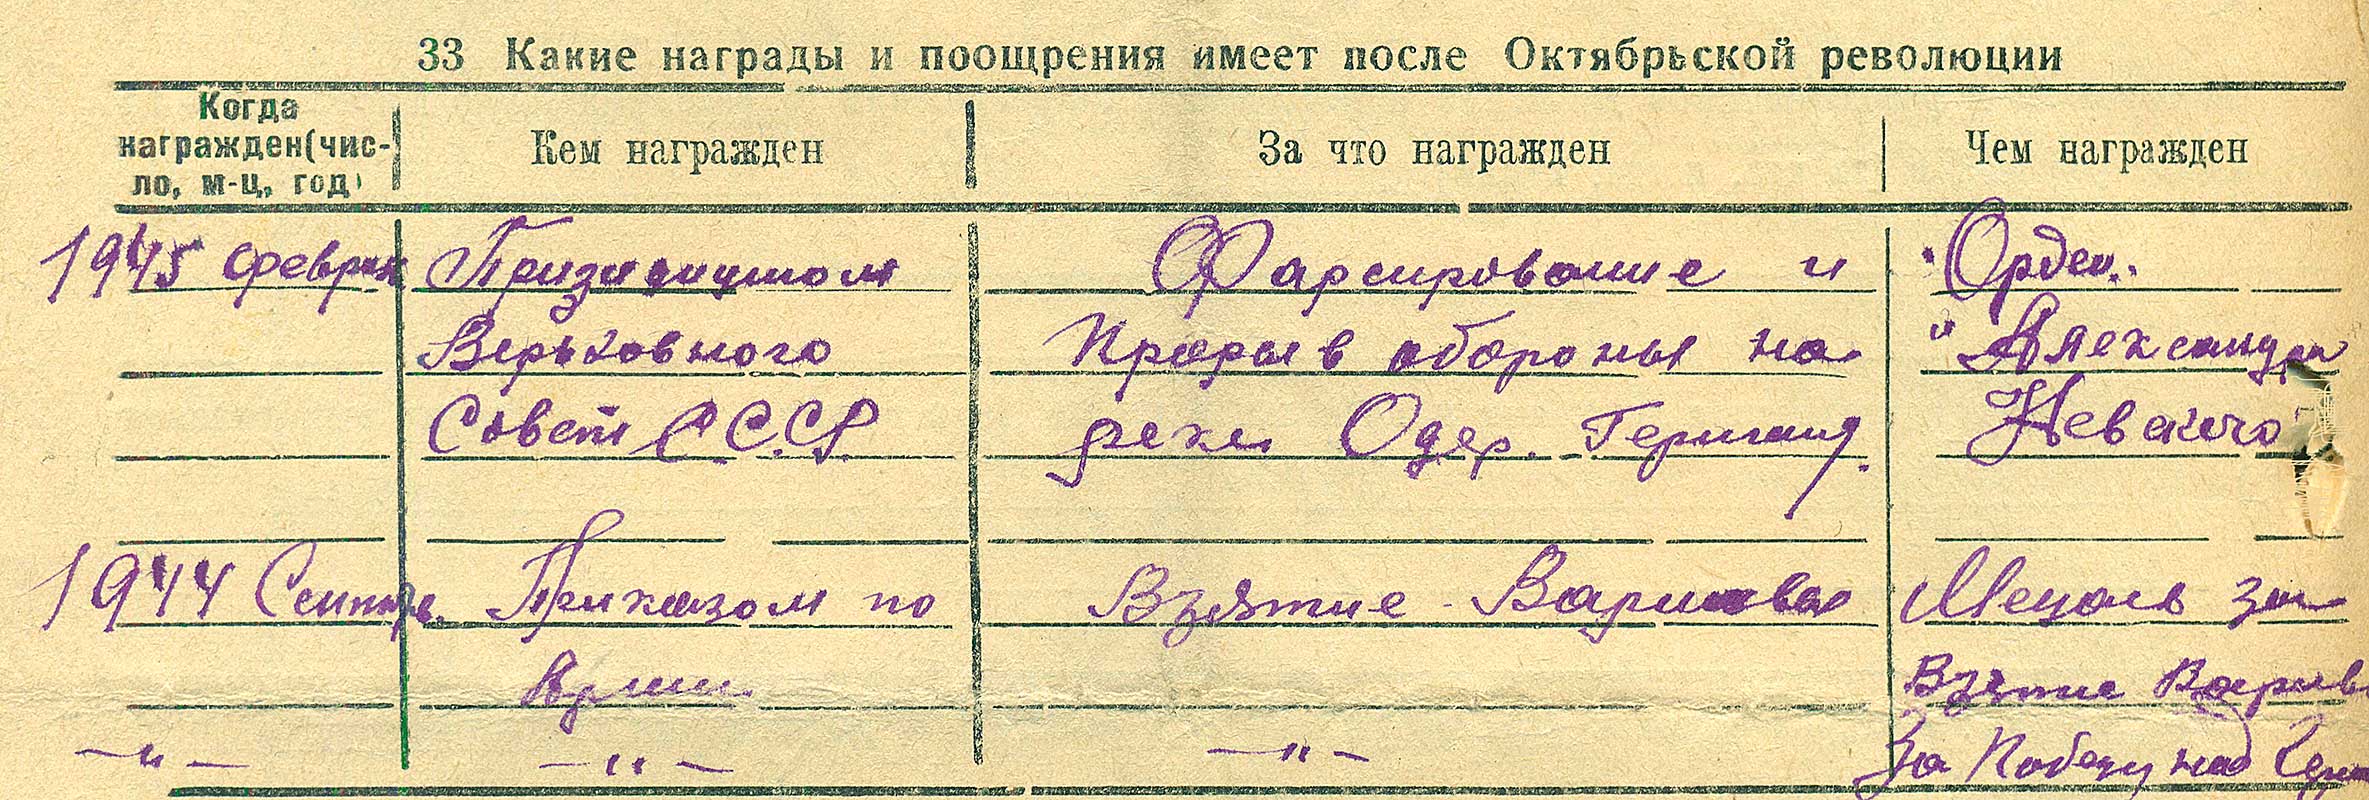 33 Какие награды и поощрения имеет после Октябрьской революции
Когда
награжден(чис-
ло, м-ц, год)
Кем награжден
За что награжден
Чем награжден
1945 феврал
Призидиумом
Верховного
Совет С.С.С.Р.
Фарсирование и
Прорыв обороны на
реке Одер. Герману.
"Орден"
"Александра
Невского
1944 Сентябр.
Приказом по
Армии
Взятие Варшавы
Медаль за
Взятие Варшав
— " —
— " —
— " —
За Победу над Герм